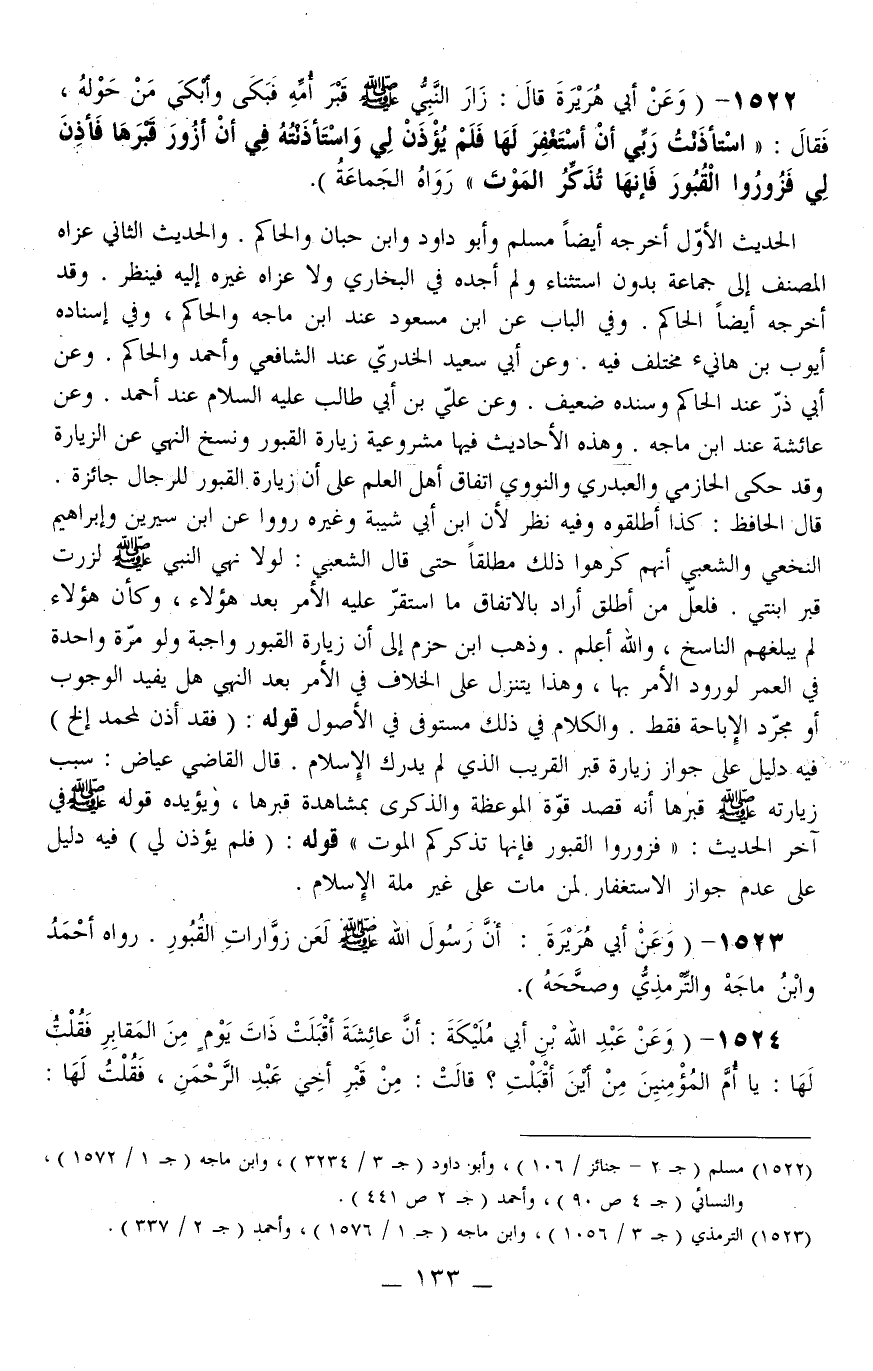 ١٥٢٢- ( وَعَنْ أبي هُرَيْرَةَ قالَ : زَارَ النَّبِيُّ ﷺ قَبْرَ أُمِّهِ فَبَكَى وأبْكَى مَنْ حَوْلهُ ،
فَقالَ : « اسْتأذَنْتُ رَبِّي أنْ أسْتَغْفِرَ لَهَا فَلَمْ يُؤْذَنْ لِي وَاسْتَأذَنْتُهُ فِي أنْ أزُورَ قَبْرَهَا فَأذِنَ
لِي فَزُورُوا الْقُبُورَ فَإنهَا تُذَكِّرُ المَوْتَ » رَوَاهُ الجَماعَةُ ).
الحديث الأوّل أخرجه أيضاً مسلم وأبو داود وابن حبان والحاكم . والحديث الثاني عزاه
المصنف إلى جماعة بدون استثناء ولم أجده في البخاري ولا عزاه غيره إليه فينظر . وقد
أخرجه أيضاً الحاكم . وفي الباب عن ابن مسعود عند ابن ماجه والحاكم ، وفي إسناده
أيوب بن هانيء مختلف فيه . وعن أبي سعيد الخدريّ عند الشافعي وأحمد والحاكم . وعن
أبي ذرّ عند الحاكم وسنده ضعيف . وعن عليّ بن أبي طالب عليه السلام عند أحمد . وعن
عائشة عند ابن ماجه . وهذه الأحاديث فيها مشروعية زيارة القبور ونسخ النهي عن الزيارة
وقد حكى الحازمي والعبدري والنووي اتفاق أهل العلم على أن زيارة القبور للرجال جائزة .
قال الحافظ : كذا أطلقوه وفيه نظر لأن ابن أبي شيبة وغيره رووا عن ابن سيرين وإبراهيم
النخعي والشعبي أنهم كرهوا ذلك مطلقاً حتى قال الشعبي : لولا نهي النبي ﷺ لزرت
قبر ابنتي . فلعلّ من أطلق أراد بالاتفاق ما استقرّ عليه الأمر بعد هؤلاء ، وكأن هؤلاء
لم يبلغهم الناسخ ، والله أعلم . وذهب ابن حزم إلى أن زيارة القبور واجبة ولو مرّة واحدة
في العمر لورود الأمر بها ، وهذا يتنزل على الخلاف في الأمر بعد النهي هل يفيد الوجوب
أو مجرّد الإباحة فقط . والكلام في ذلك مستوفى في الأصول قوله : ( فقد أذن لمحمد إلخ )
فيه دليل على جواز زيارة قبر القريب الذي لم يدرك الإسلام . قال القاضي عياض : سبب
زيارته ﷺ قبرها أنه قصد قوّة الموعظة والذكرى بمشاهدة قبرها ، ويؤيده قوله ﷺ في
آخر الحديث : « فزوروا القبور فإنها تذكركم الموت » قوله : ( فلم يؤذن لي ) فيه دليل
على عدم جواز الاستغفار لمن مات على غير ملة الإسلام .
١٥٢٣- ( وَعَنْ أبي هُرَيْرَةَ : أنَّ رَسُولَ الله ﷺ لَعَن زوَّاراتِ القُبُورِ . رواه أحْمَدُ
وابْنُ ماجَهْ والتِّرْمذِيُّ وصحَّحَهُ ).
١٥٢٤- ( وَعَنْ عَبْدِ الله بْنِ أبي مُلَيْكَةَ : أنَّ عائِشَةَ أقْبَلَتْ ذَاتَ يَوْمٍ مِنَ المَقابِرِ فَقُلْتُ
لَهَا : يا أُمَّ المُؤْمِنِينَ مِنْ أيْنَ أقْبَلْتِ ؟ قالَتْ : مِنْ قَبْرِ أخِي عَبْدِ الرَّحْمَنِ ، فَقُلْتُ لَهَا :
(١٥٢٢) مسلم ( جـ ٢ - جنائز / ١٠٦ ) ، وأبو داود ( جـ ٣ / ٣٢٣٤ ) ، وابن ماجه ( جـ ١ / ١٥٧٢ ) ،
والنسائي ( جـ ٤ ص ٩٠ ) ، وأحمد ( جـ ٢ ص ٤٤١ ) .
(١٥٢٣) الترمذي ( جـ ٣ / ١٠٥٦ ) ، وابن ماجه ( جـ ١ / ١٥٧٦ ) ، وأحمد ( جـ ٢ / ٣٣٧ ) .
_ ١٣٣ _